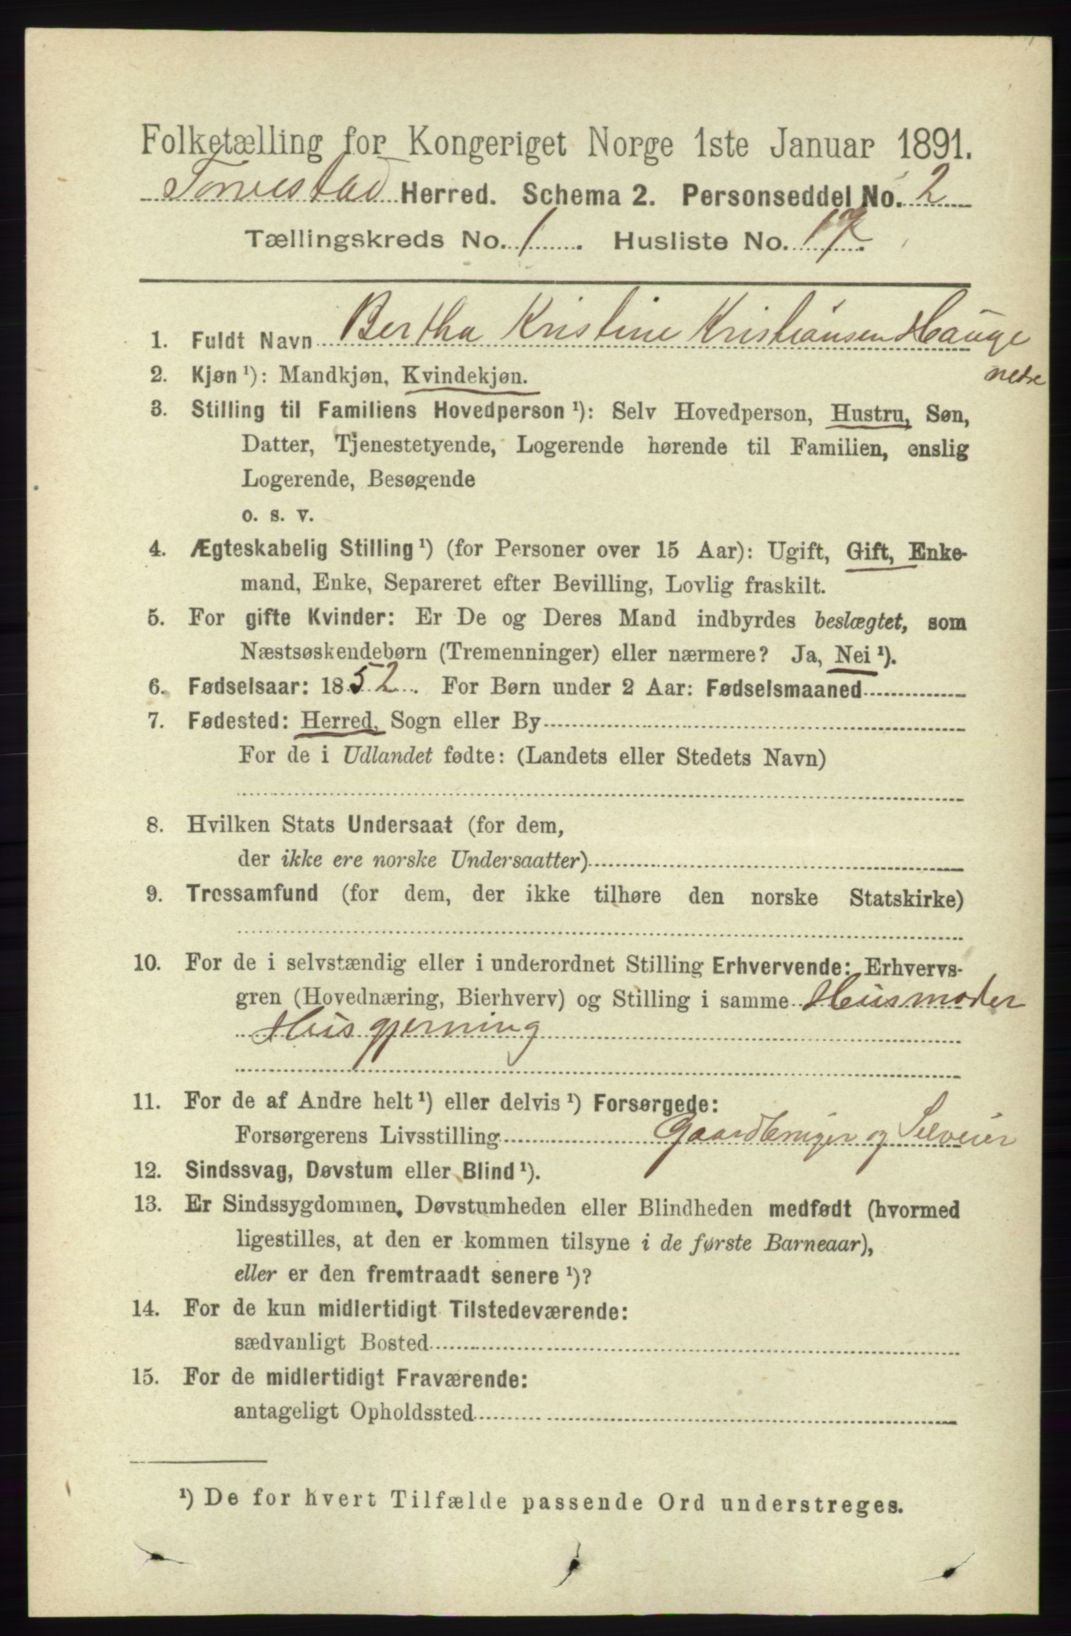 Folketælling for Kongeriget Norge 1ste Januar 1891.
Torvestad Herred. Schema 2. Personseddel No. 2
Tællingskreds No. 1. Husliste No. 17.
1. Fuldt Navn Bertha Kristine Kristiansen Hauge
nedre
2. Kjøn ¹): Mandkjøn, Kvindekjøn.
3. Stilling til Familiens Hovedperson ¹): Selv Hovedperson, Hustru, Søn,
Datter, Tjenestetyende, Logerende hørende til Familien, enslig
Logerende, Besøgende
o. s. v.
4. Ægteskabelig Stilling ¹) (for Personer over 15 Aar): Ugift, Gift, Enke-
mand, Enke, Separeret efter Bevilling, Lovlig fraskilt.
5. For gifte Kvinder: Er De og Deres Mand indbyrdes beslægtet, som
Næstsøskendebørn (Tremenninger) eller nærmere? Ja, Nei ¹).
6. Fødselsaar: 1852. For Børn under 2 Aar: Fødselsmaaned
7. Fødested: Herred, Sogn eller By
For de i Udlandet fødte: (Landets eller Stedets Navn)
8. Hvilken Stats Undersaat (for dem,
der ikke ere norske Undersaatter)
9. Trossamfund (for dem, der ikke tilhøre den norske Statskirke)
10. For de i selvstændig eller i underordnet Stilling Erhvervende: Erhvervs-
gren (Hovednæring, Bierhverv) og Stilling i samme Husmoder
Husgjerning
11. For de af Andre helt ¹) eller delvis ¹) Forsørgede:
Forsørgerens Livsstilling Gaardbruger og Selveier
12. Sindssvag, Døvstum eller Blind ¹).
13. Er Sindssygdommen, Døvstumheden eller Blindheden medfødt (hvormed
ligestilles, at den er kommen tilsyne i de første Barneaar),
eller er den fremtraadt senere ¹)?
14. For de kun midlertidigt Tilstedeværende:
sædvanligt Bosted
15. For de midlertidigt Fraværende:
antageligt Opholdssted
¹) De for hvert Tilfælde passende Ord understreges.